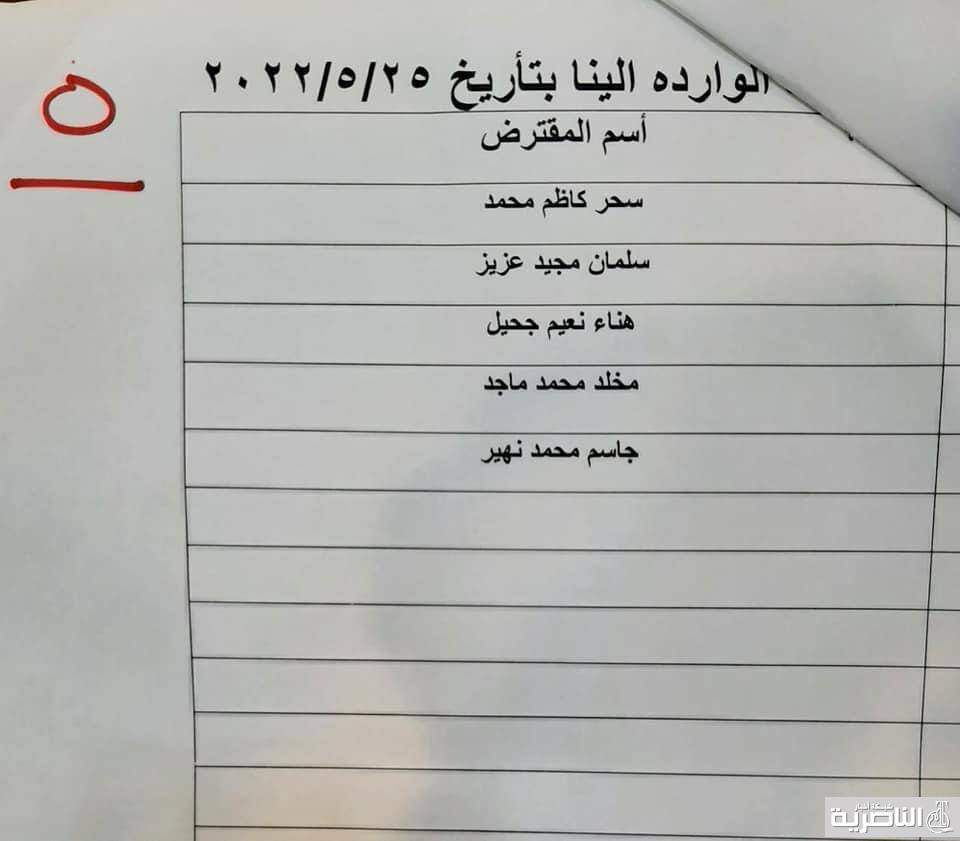 الوارده الينا بتأريخ ٢٠٢٢/٥/٢٥
٥
أسم المقترض
سحر كاظم محمد
سلمان مجيد عزيز
هناء نعيم جحيل
مخلد محمد ماجد
جاسم محمد نهير
شبكة أخبار
الناصرية